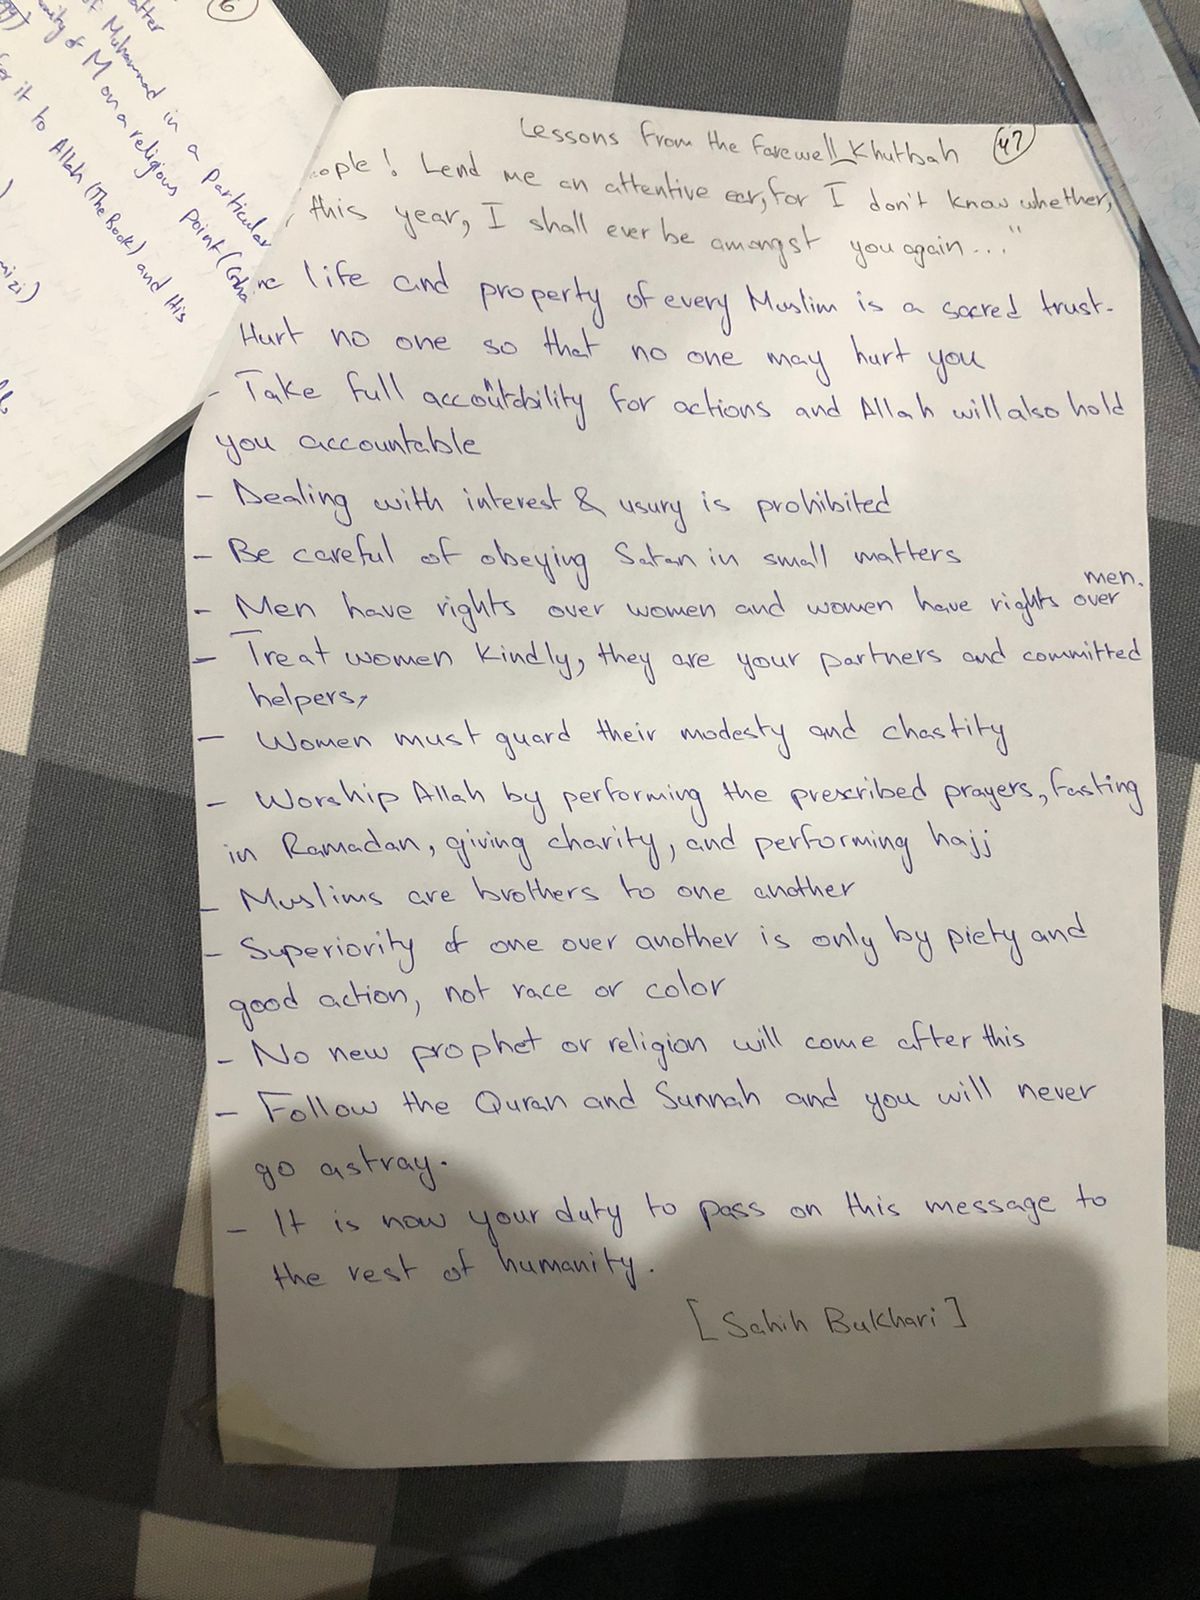 6
Muhammad in a particular
M on a religious point
for it to Allah (The Book) and His
Lessons from the Farewell Khutbah
47
Lend me an attentive ear, for I don't know whether,
this year, I shall ever be amongst you again..."
life and property of every Muslim is a sacred trust.
Hurt no one so that no one may hurt you
- Take full accountability for actions and Allah will also hold
you accountable
- Dealing with interest & usury is prohibited
- Be careful of obeying Satan in small matters
- Men have rights over women and women have rights over men.
- Treat women kindly, they are your partners and committed
helpers,
- Women must guard their modesty and chastity
- Worship Allah by performing the prescribed prayers, fasting
in Ramadan, giving charity, and performing hajj
- Muslims are brothers to one another
- Superiority of one over another is only by piety and
good action, not race or color
- No new prophet or religion will come after this
- Follow the Quran and Sunnah and you will never
go astray.
- It is now your duty to pass on this message to
the rest of humanity.
[Sahih Bukhari]